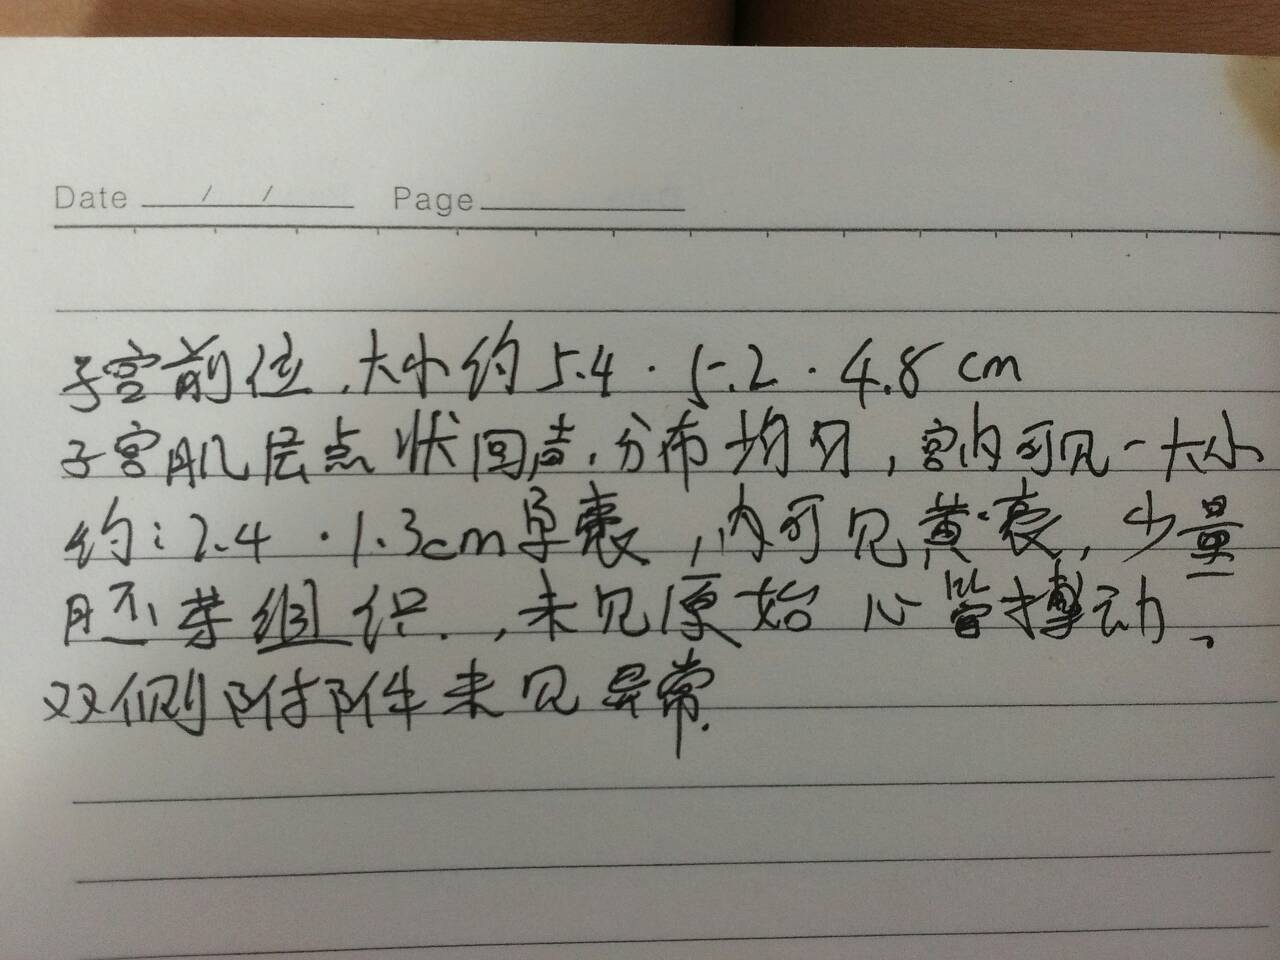 Date / / Page
子宫前位,大小约5.4·5.2·4.8cm
子宫肌层点状回声,分布均匀,宫内可见一大小
约:2.4·1.3cm孕囊,内可见黄囊,少量
胚芽组织,未见原始心管搏动、
双侧附件未见异常.